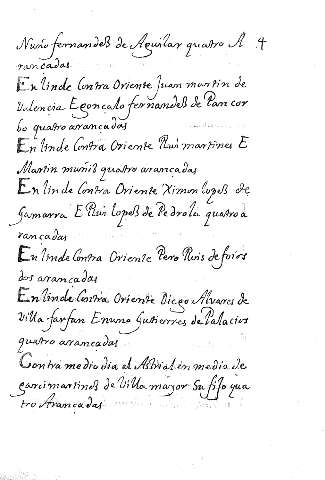 Nuño fernandes de Aguilar quatro A 4
rançadas
En linde Contra Oriente Juan martin de
Valençia E gonçalo fernandes de Pan cor
bo quatro arancadas
En linde Contra Oriente Rui martines E
Martin muñis quatro arançadas
En linde Contra Oriente Ximon lopes de
Gamarra E Rui lopes de Pedrola quatro a
rancadas
En linde Contra Oriente Pero Ruis de
dos arancadas
En linde Contra Oriente Diego Alvares de
Villa farfan E nuno Gutierres de Palacios
quatro arancadas
Contra medio dia el en medio de
garci martines de Villa mayor Su fijo qua
tro Arançadas